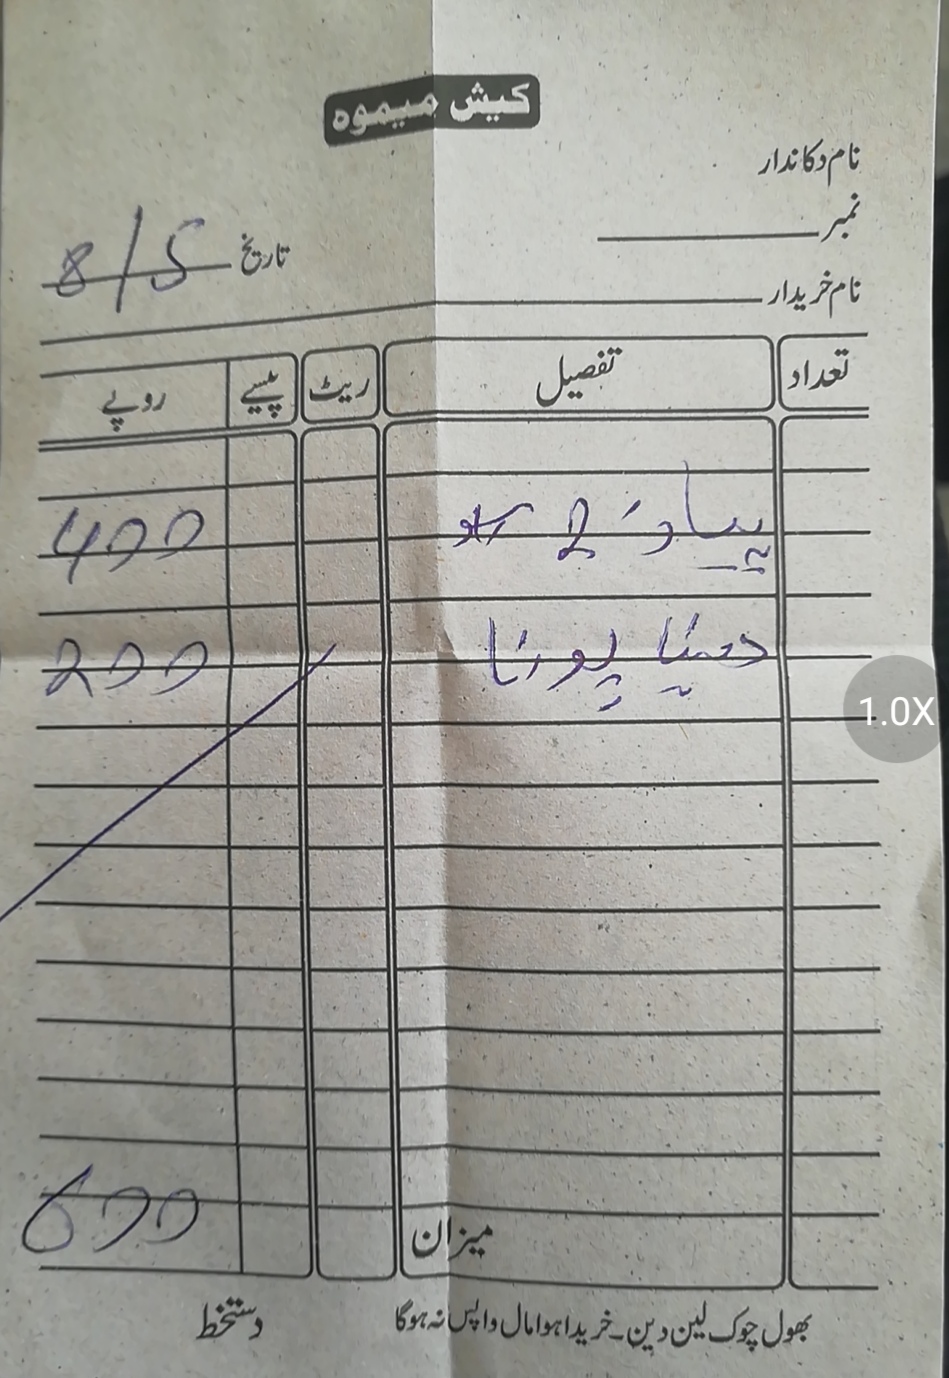 کیش میمو
نام دکاندار
نمبر
تاریخ 8/5
نام خریدار
تعداد تفصیل ریٹ پیسے روپے
پیاز 2 400
دھنیا پودنا 200
میزان 600
بھول چوک لین دین۔خریدا ہوا مال واپس نہ ہوگا
دستخط
1.0X